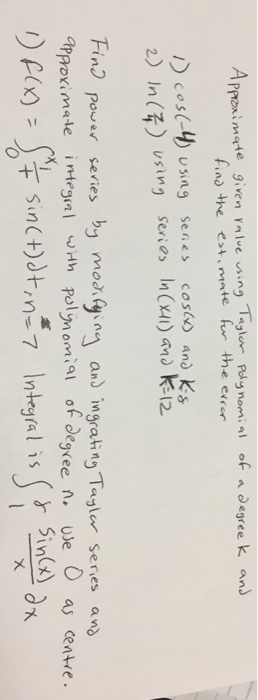 Approximate given value using Taylor Polynomial of a degree k and
find the estimate for the error
1) cos(-4) using series cos(x) and k=8
2) ln(7/4) using series ln(x+1) and k=12
Find power series by modifying and ingrating Taylor series and
approximate integral with polynomial of degree n. Use 0 as centre.
1) f(x) = ∫₀ˣ 1/t sin(t)dt, n=7 Integral is ∫₁⁸ sin(x)/x dx